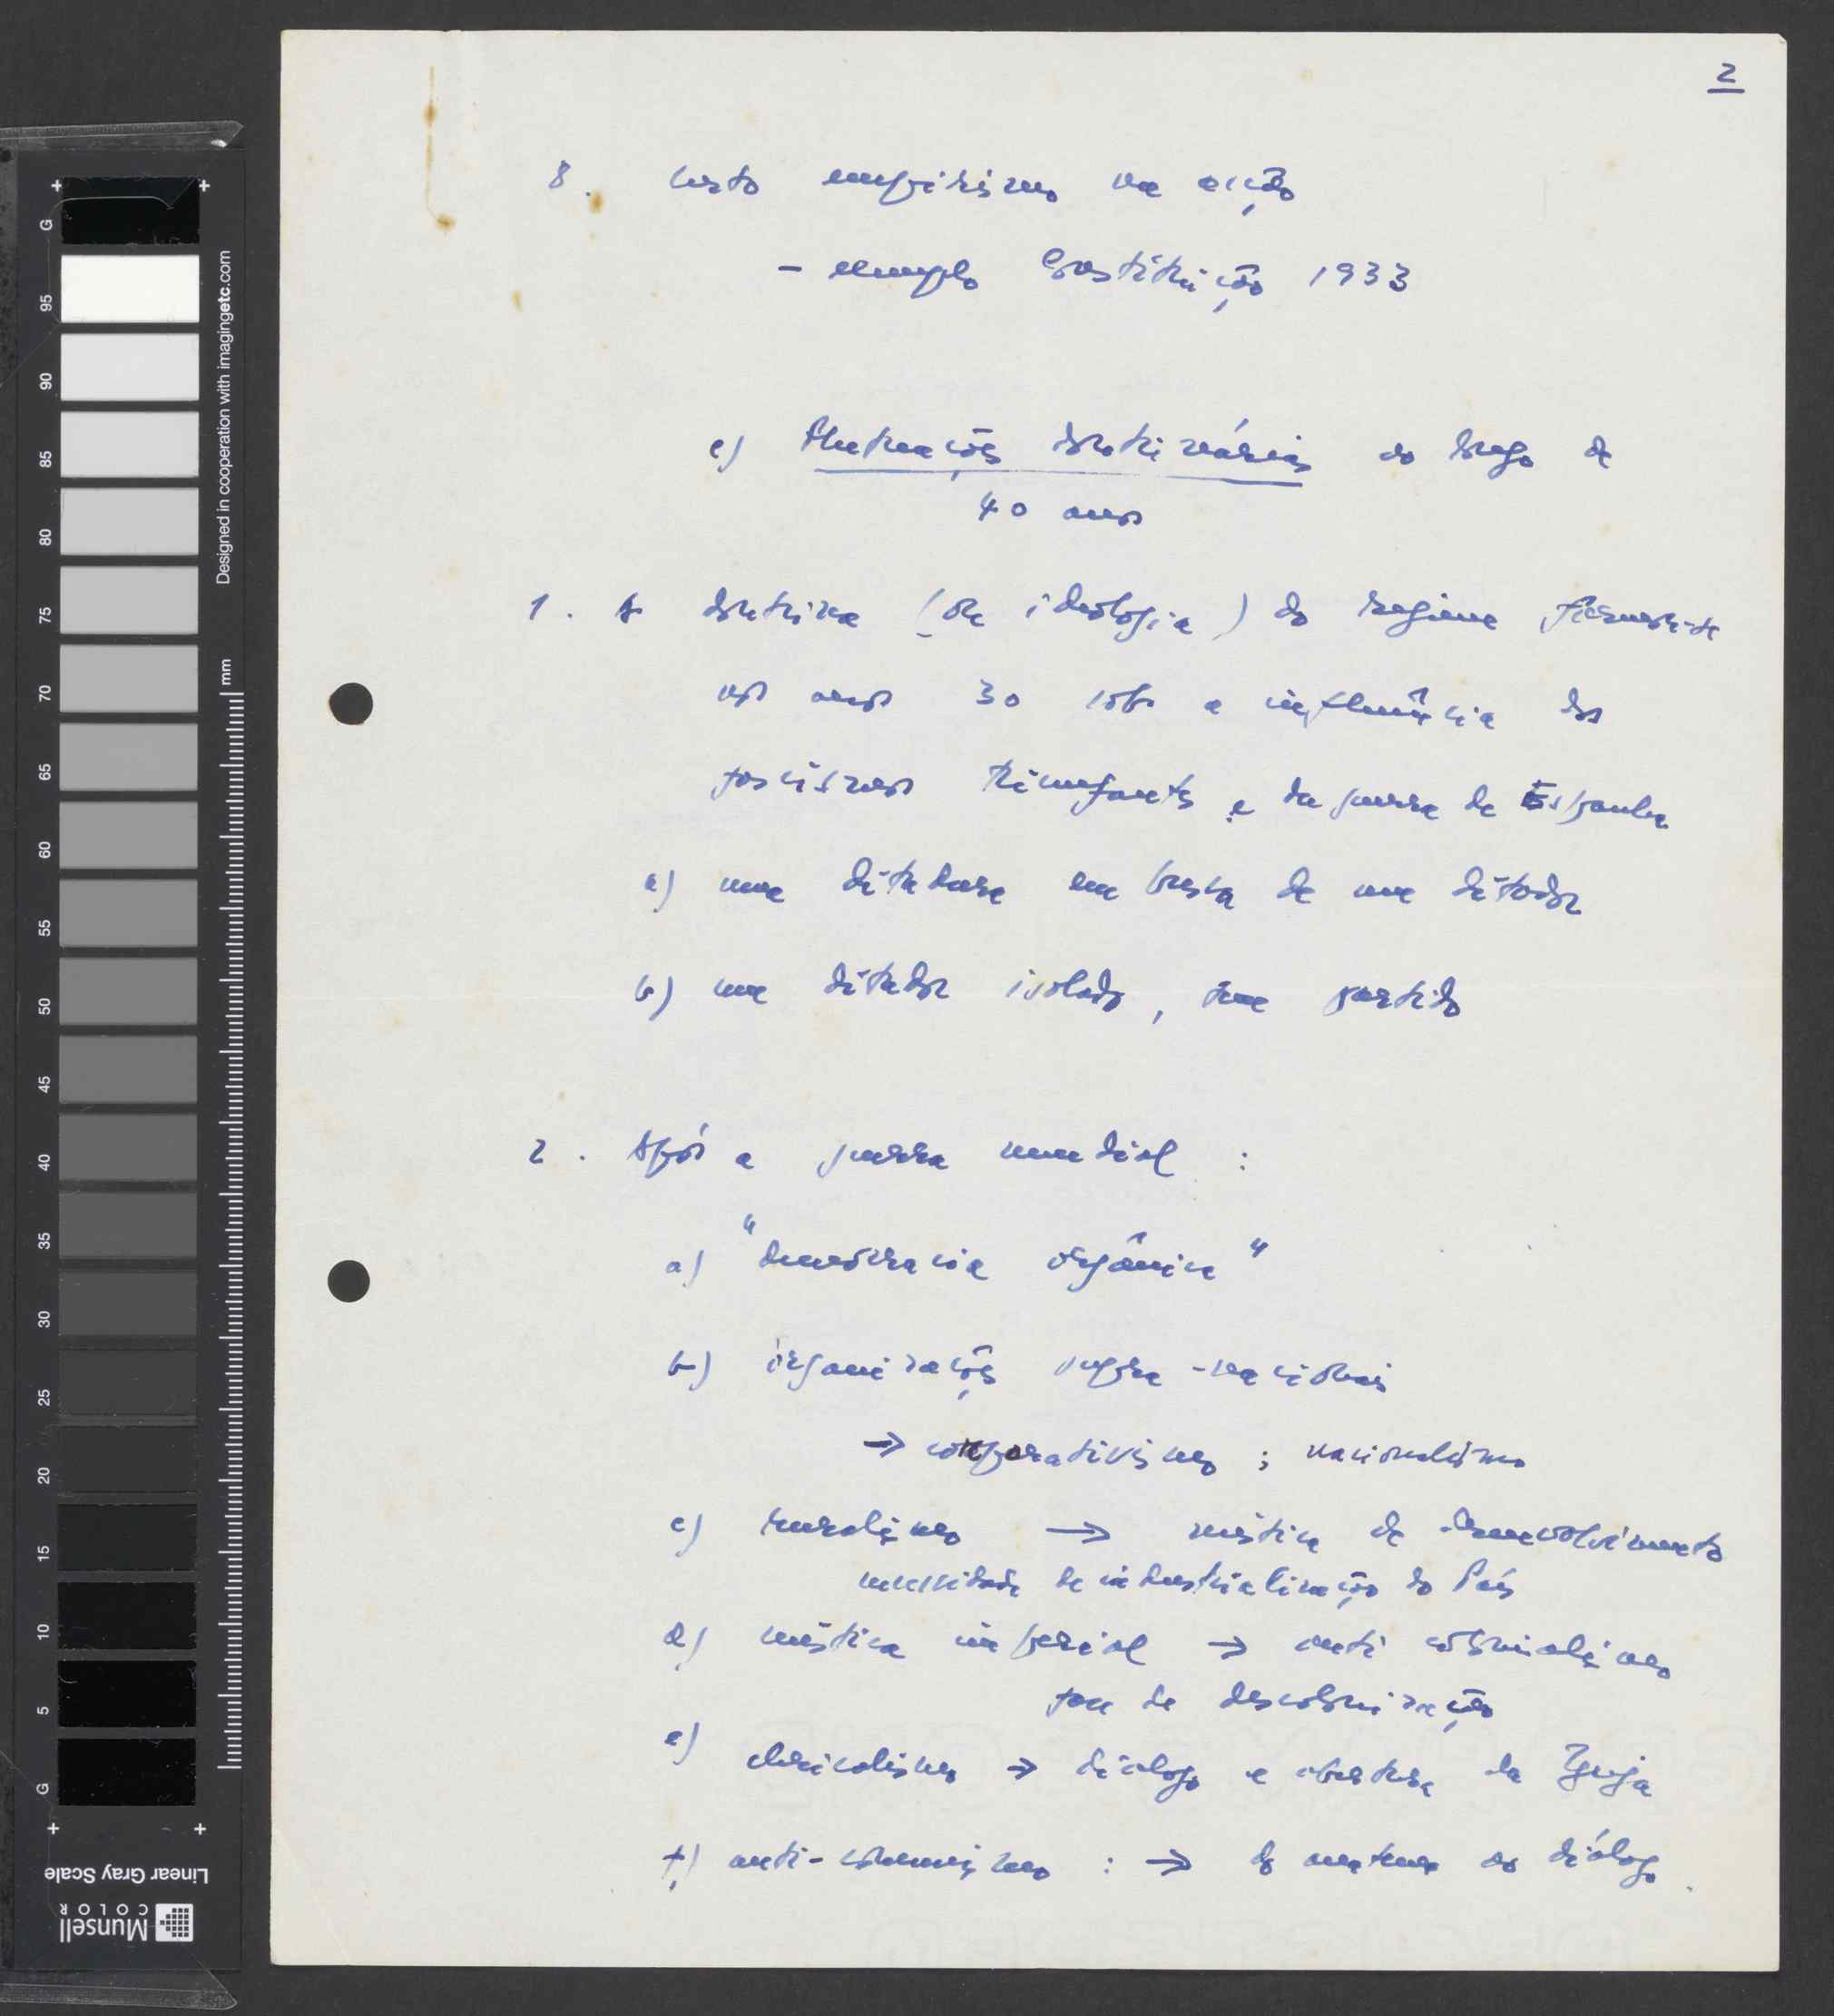 2
8. certo empirismo na acção
- exemplo Constituição 1933
c) flutuações doutrinárias ao longo de
40 anos
1. A doutrina (ou ideologia) do regime
nos anos 30 sob a influência dos
fascismos triunfantes e da guerra de Espanha
a) uma ditadura em busca de um ditador
b) um ditador isolado, sem partido
2. Após a guerra mundial :
a) "democracia orgânica"
b) organizações supra-nacionais
→ corporativismo ; nacionalismo
c) ruralismo → mística de desenvolvimento
necessidade de industrialização do País
d) mística imperial → anti colonialismo
fase de descolonização
e) clericalismo → diálogo e abertura da Igreja
f) anti-comunismo : → do ao diálogo.
G 95 90 85 80 75 70 65 60 55 50 45 40 35 30 25 20 15 10 5 G
Designed in cooperation with imagingetc.com
mm
Linear Gray Scale
Munsell
COLOR